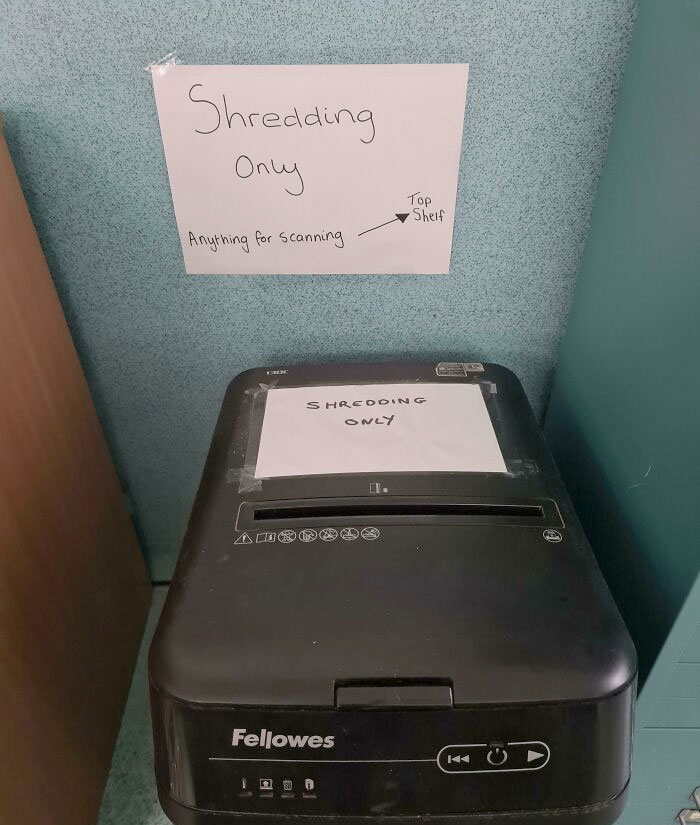 Shredding
Only
Top
Shelf
Anything for scanning
130C
SHREDDING
ONLY
Fellowes